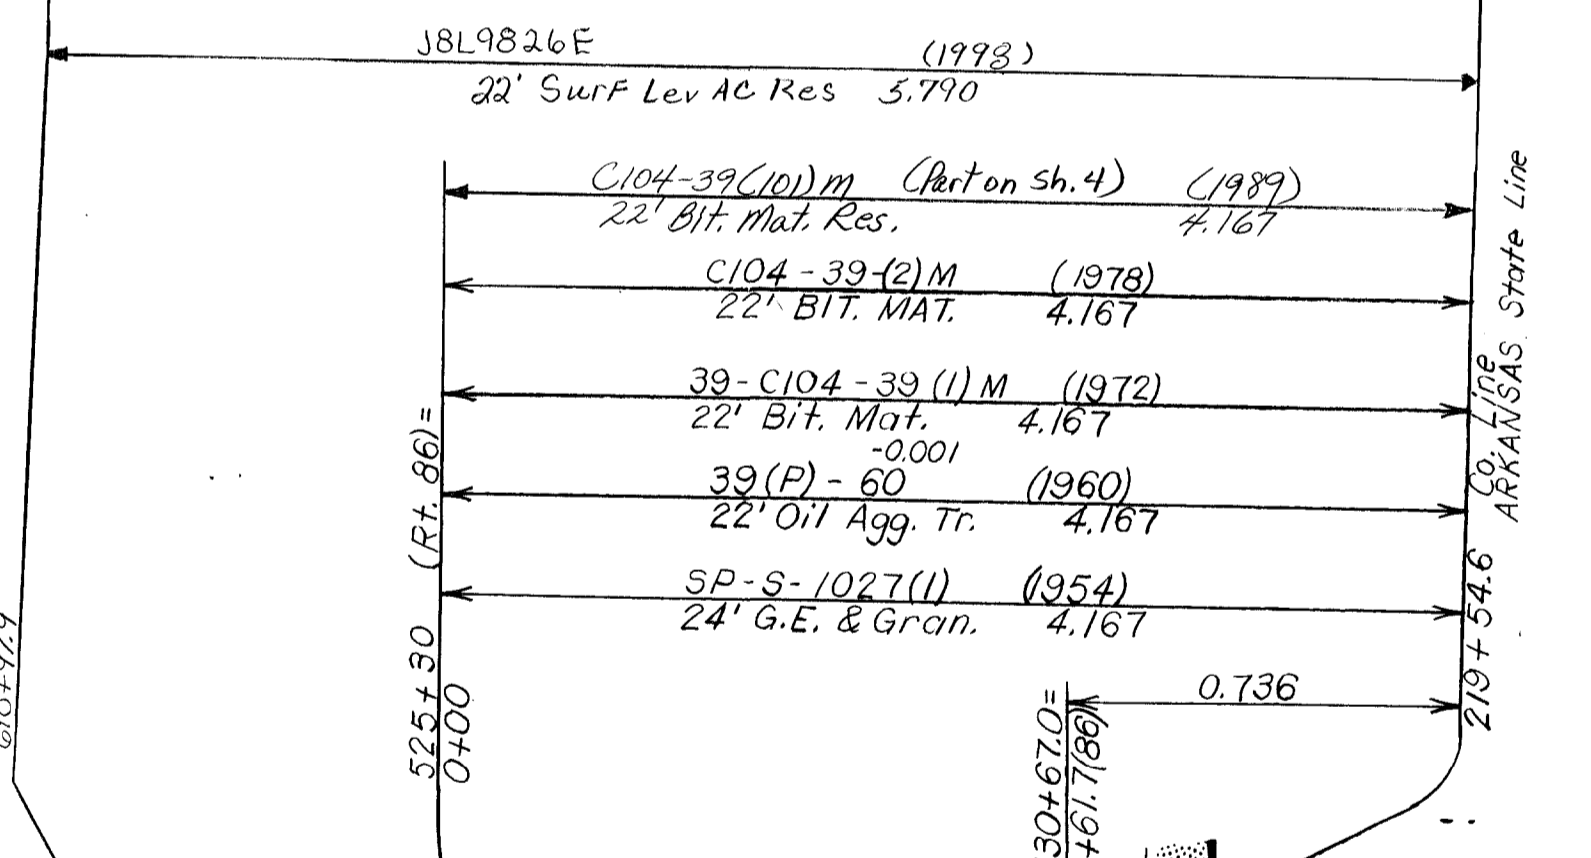 J8L9826E (1998)
22' Surf Lev AC Res 5.790
C104-39(101)m (Part on Sh.4) (1989)
22' Bit. Mat. Res. 4.167
C104-39-(2)M (1978)
22' BIT. MAT. 4.167
39-C104-39(1)M (1972)
22' Bit. Mat. 4.167
-0.001
39(P)-60 (1960)
22' Oil Agg. Tr. 4.167
SP-S-1027(1) (1954)
24' G.E. & Gran. 4.167
0.736
525+30 (Rt. 86)=
0+00
30+67.0=
+61.7(86)
219+54.6 Co. Line
ARKANSAS State Line